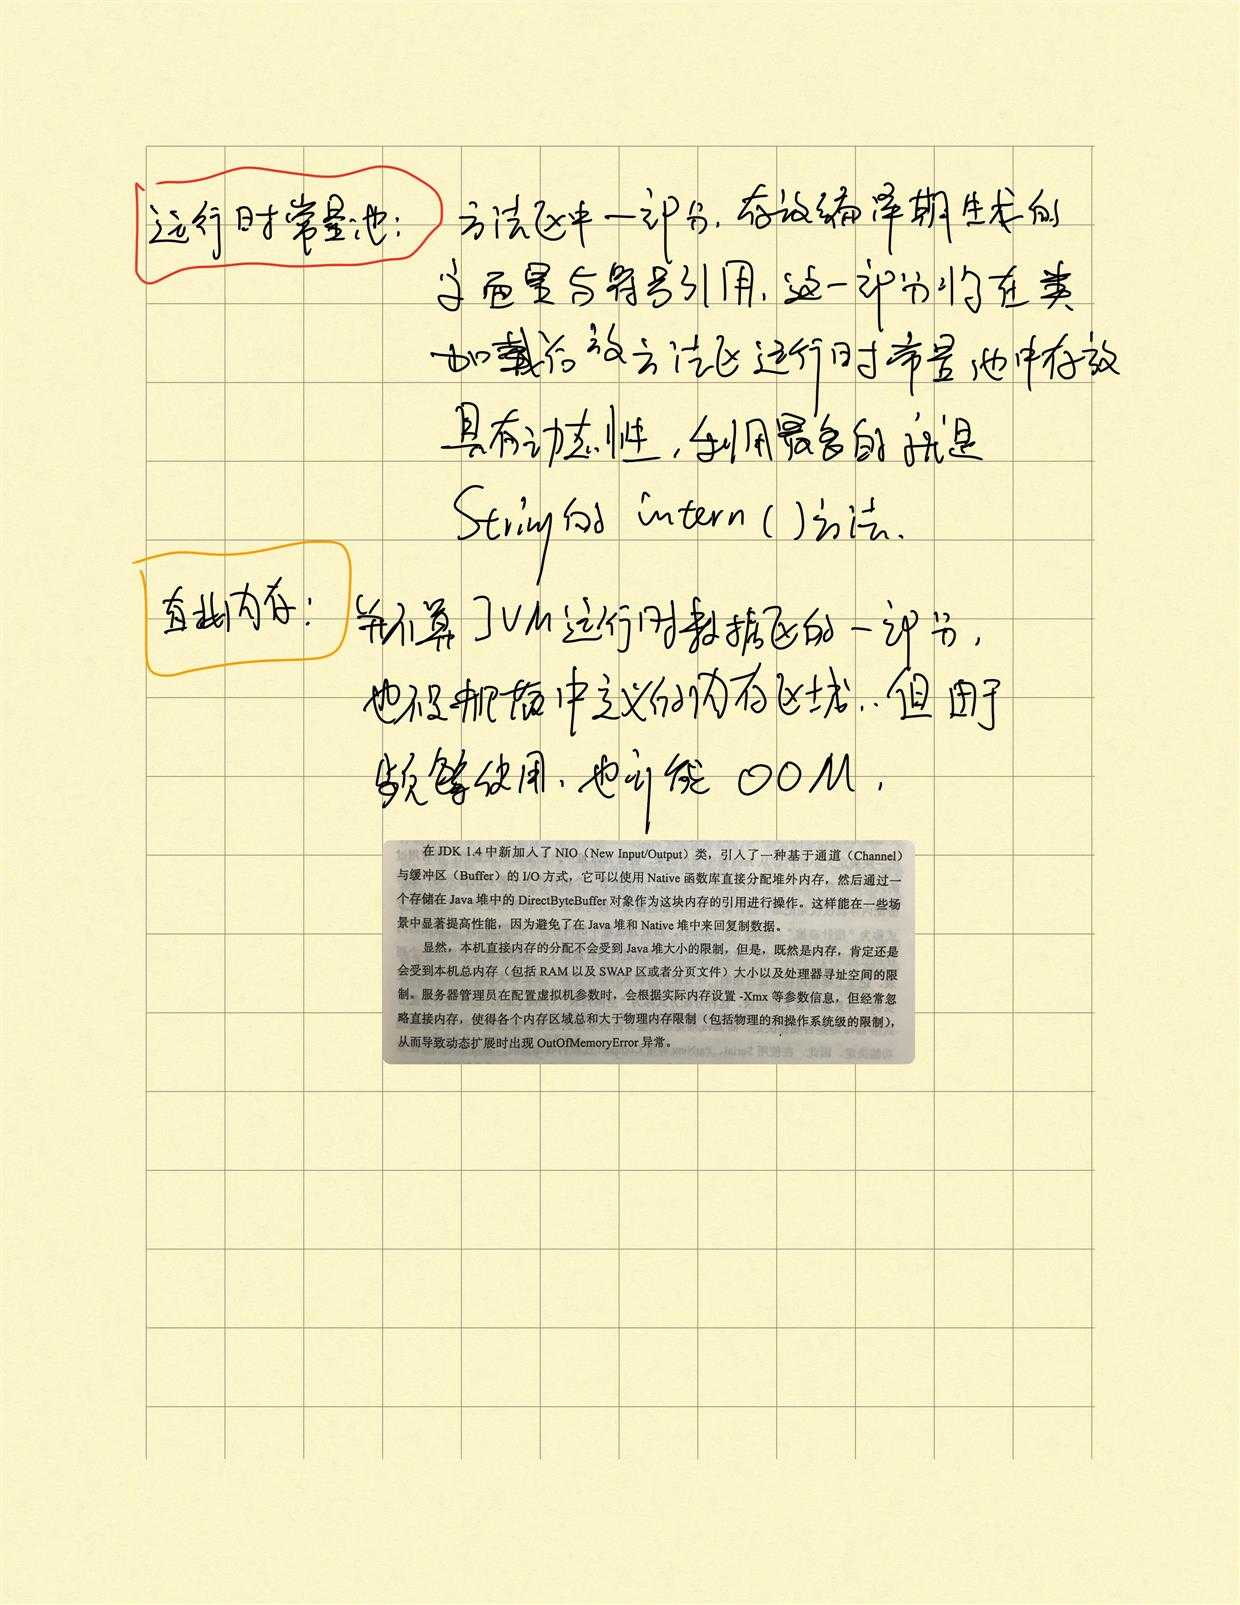 运行时常量池：方法区中一部分，存放编译期生成的
字面量与符号引用，这一部分将在类
加载后放方法区运行时常量池中存放
具有动态性，利用最多的就是
String的 intern()方法.
直接内存：并不算JVM运行时数据区的一部分，
也不是规范中定义的内存区域..但由于
频繁使用，也可能OOM，
在JDK 1.4中新加入了NIO（New Input/Output）类，引入了一种基于通道（Channel）
与缓冲区（Buffer）的I/O方式，它可以使用Native函数库直接分配堆外内存，然后通过一
个存储在Java堆中的DirectByteBuffer对象作为这块内存的引用进行操作。这样能在一些场
景中显著提高性能，因为避免了在Java堆和Native堆中来回复制数据。
显然，本机直接内存的分配不会受到Java堆大小的限制，但是，既然是内存，肯定还是
会受到本机总内存（包括RAM以及SWAP区或者分页文件）大小以及处理器寻址空间的限
制。服务器管理员在配置虚拟机参数时，会根据实际内存设置-Xmx等参数信息，但经常忽
略直接内存，使得各个内存区域总和大于物理内存限制（包括物理的和操作系统级的限制），
从而导致动态扩展时出现OutOfMemoryError异常。